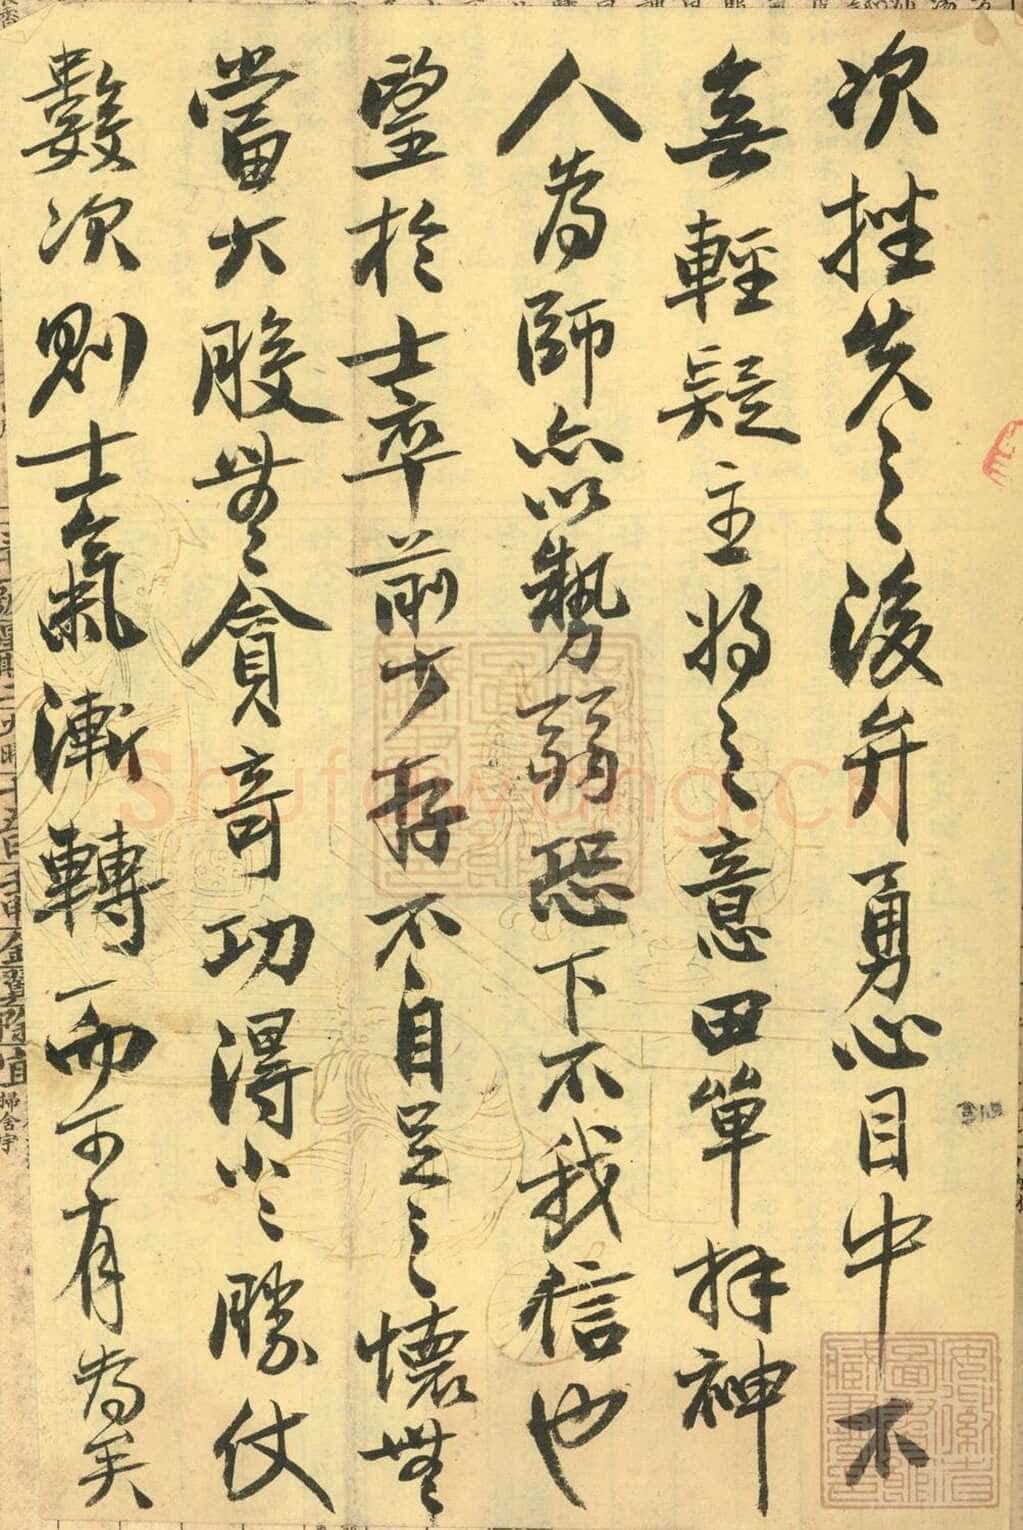 次挫失之後弁勇心目中不
無輕疑主將之意田單拜神
人為師亦以勢弱恐下不我信也
望於士卒前少存不自足之懷無
當大股無貪奇功得小〻勝仗
數次則士氣漸轉而可有為矣
掃舍宇
Shufawang.CN